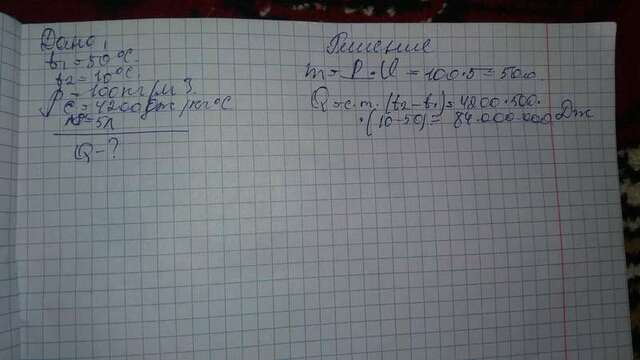 Дано:
t₁ = 50°C.
t₂ = 10°C.
ρ = 100кг/м³.
c = 4200Дж/кг°C
V = 5л
Q - ?
Решение
m = ρ · V = 100 · 5 = 500.
Q = c . m . (t₂ - t₁) = 4200 · 500 ·
· (10 - 50) = 84.000.000 Дж